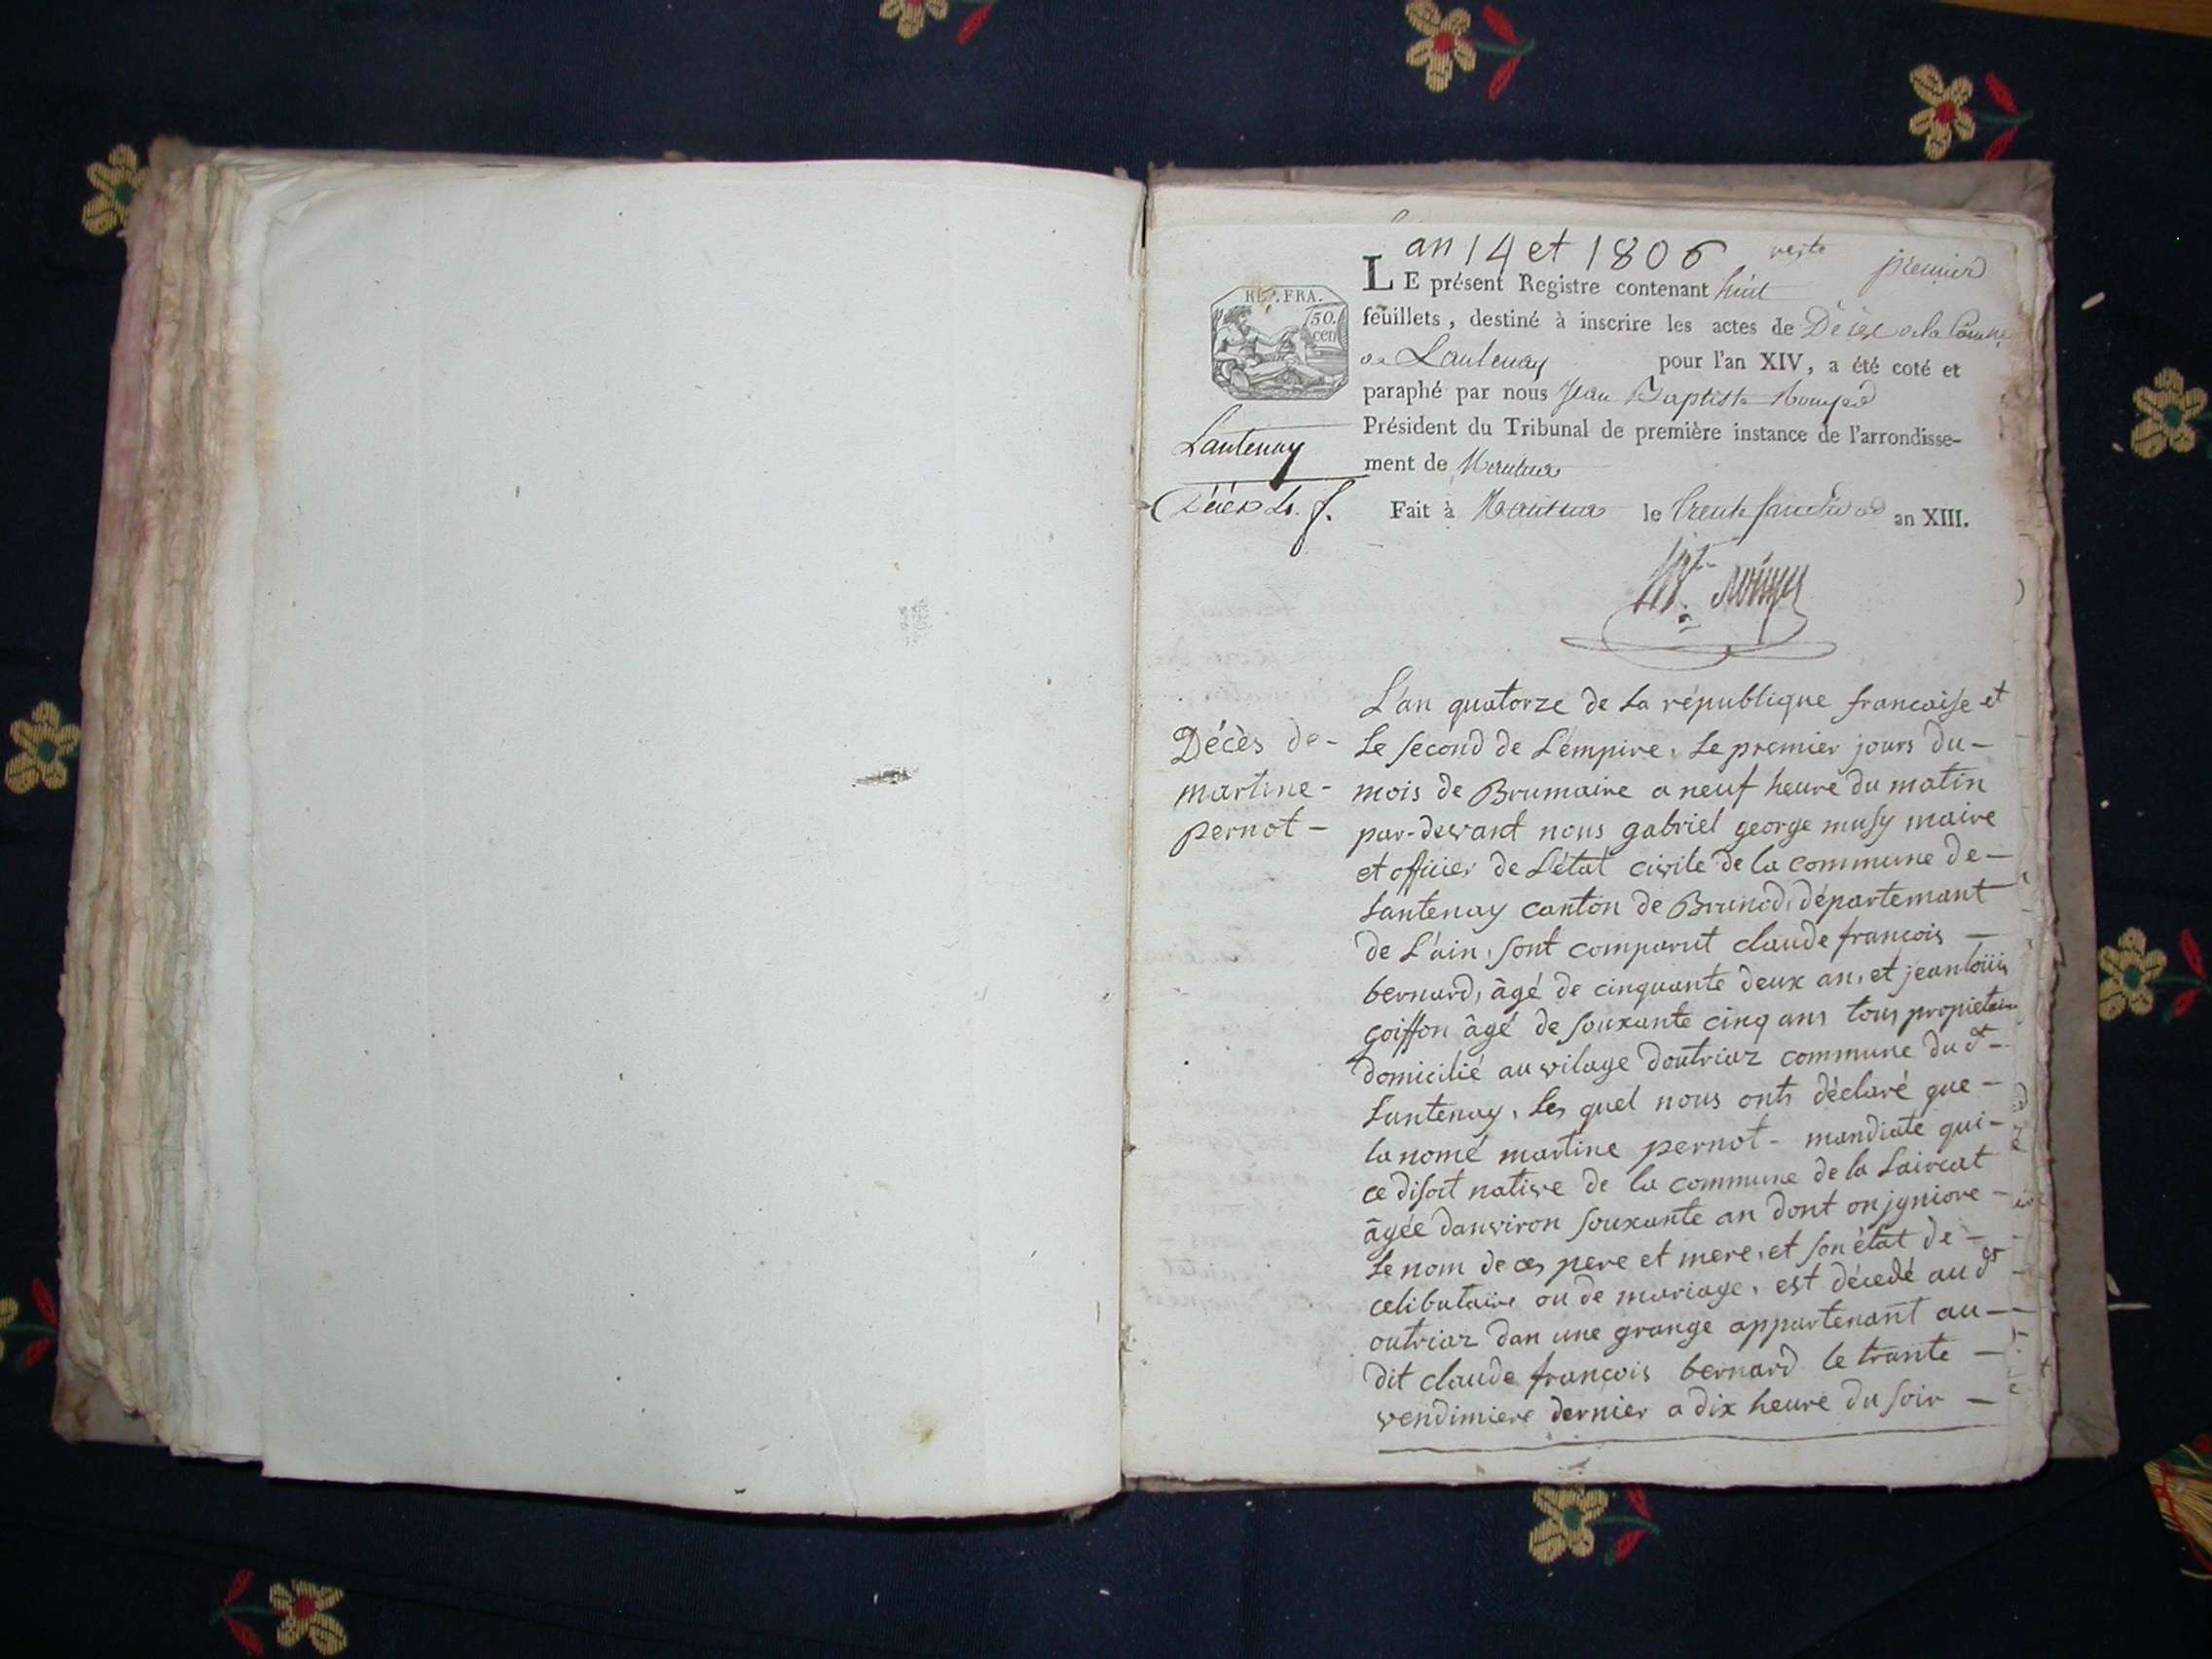 an 14 et 1806
premier
REP. FRA.
50.
cen
LE présent Registre contenant huit
feuillets, destiné à inscrire les actes de Décès de la Comne
de Lantenay pour l'an XIV, a été coté et
paraphé par nous Jean Baptiste
Président du Tribunal de première instance de l'arrondisse-
ment de Nantua
Fait à Nantua le trente fructidor an XIII.
Lantenay
Décès
Décès de-
martine-
pernot-
L'an quatorze de La république francaise et
Le second de L'émpire, Le premier jours du-
mois de Brumaire a neuf heure du matin
par-devant nous gabriel george musy maire
et officier de L'état civile de la commune de-
Lantenay canton de Brunod, département
de L'ain, sont comparut claude francois -
bernard, âgé de cinquante deux an, et jean louis
goiffon âgé de souxante cinq ans tous propietaire
domicilié au vilage doutriaz commune du dt-
Lantenay, Les quel nous onts déclaré que-
la nomé martine pernot- mandiate qui-
ce disoit native de la commune de la Laircat
âgée danviron souxante an dont on jgniore-
Le nom de ces pere et mere, et son état de-
celibataire ou de mariage, est décedé au dt
outriaz dan une grange appartenant au-
dit claude francois bernard le trante-
vendimiere dernier a dix heure du soir-